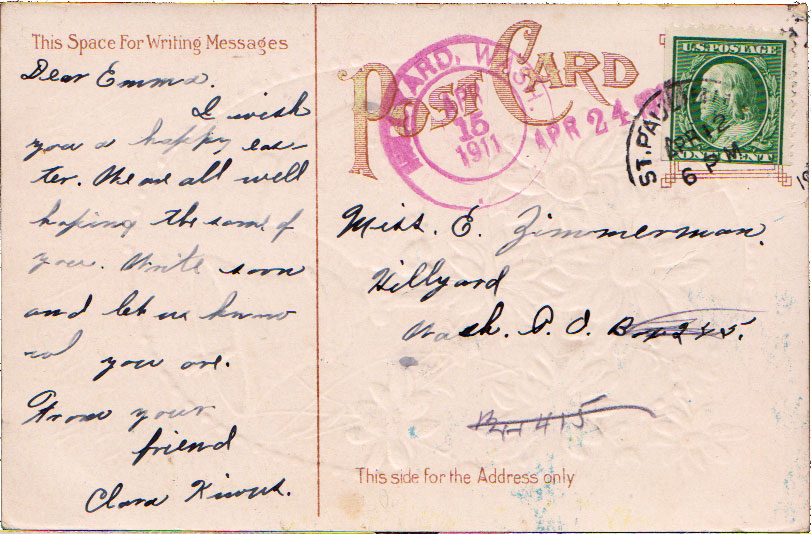 This Space For Writing Messages
Dear Emma.
I wish
you a happy eas-
ter. We are all well
hoping the same of
you. Write soon
and let us know
you are.
From your
friend
Clara
POST CARD
HILLYARD, WASH.
APR
15
1911
APR 24
U.S. POSTAGE
ONE CENT
ST. PAUL
APR 12
6 PM
Miss. E. Zimmerman.
Hillyard
Wash. P. O. Box 245.
Box 415
This side for the Address only